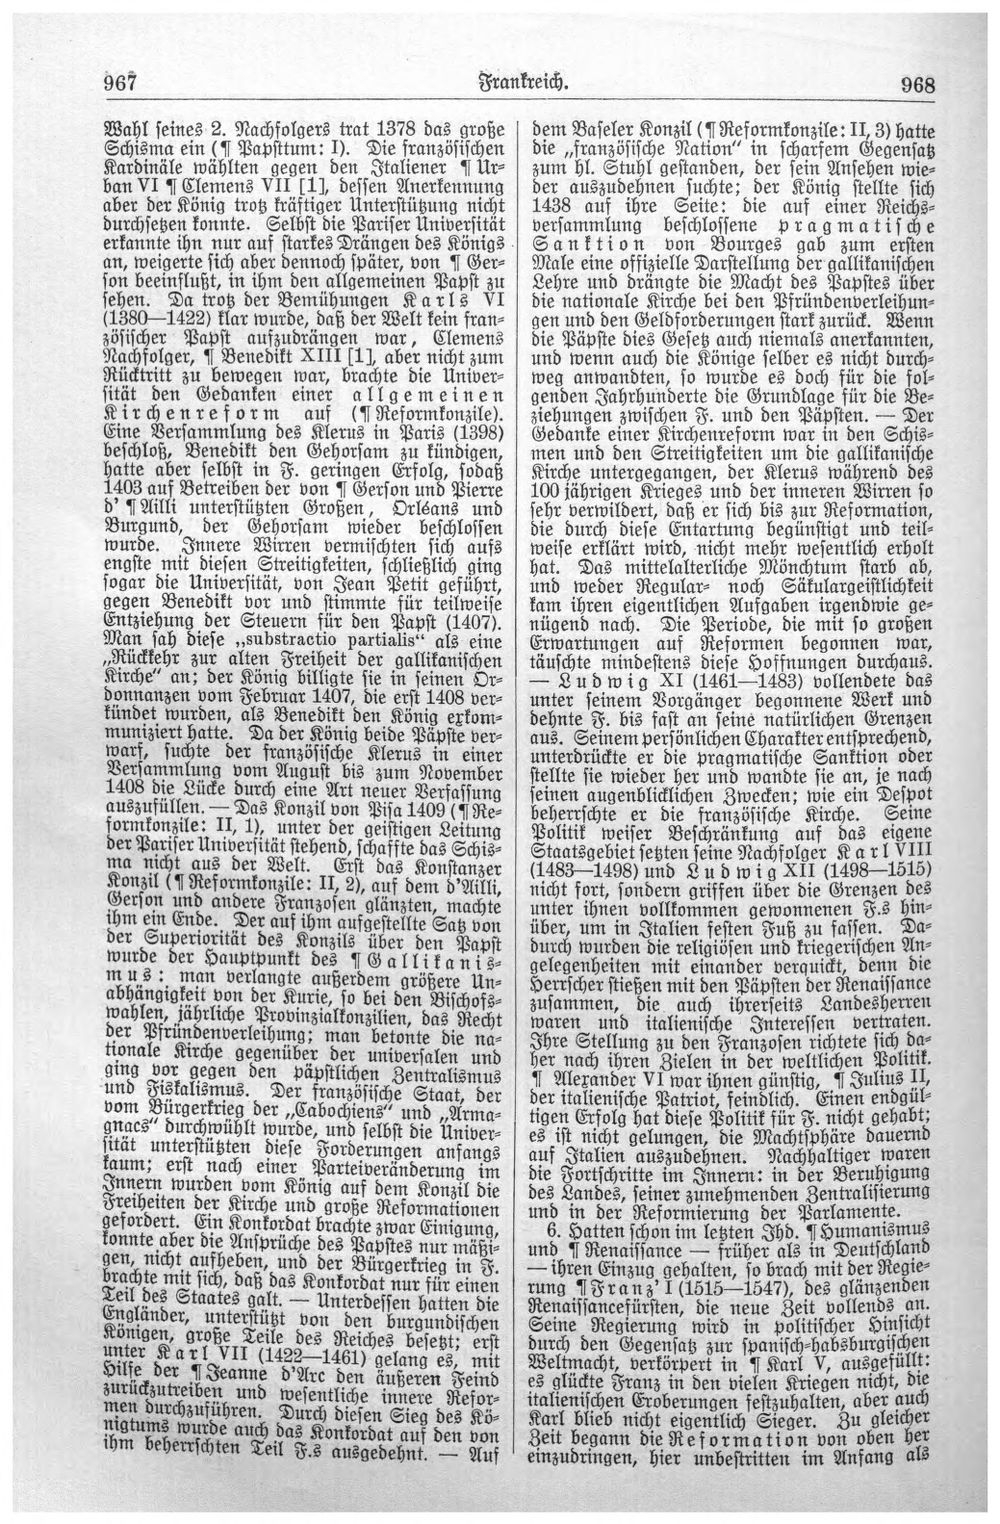 967
Frankreich.
968
Wahl seines 2. Nachfolgers trat 1378 das große
Schisma ein (¶ Papsttum: I). Die französischen
Kardinäle wählten gegen den Italiener ¶ Ur=
ban VI ¶ Clemens VII [1], dessen Anerkennung
aber der König trotz kräftiger Unterstützung nicht
durchsetzen konnte. Selbst die Pariser Universität
erkannte ihn nur auf starkes Drängen des Königs
an, weigerte sich aber dennoch später, von ¶ Ger=
son beeinflußt, in ihm den allgemeinen Papst zu
sehen. Da trotz der Bemühungen Karls VI
(1380—1422) klar wurde, daß der Welt kein fran=
zösischer Papst aufzudrängen war, Clemens
Nachfolger, ¶ Benedikt XIII [1], aber nicht zum
Rücktritt zu bewegen war, brachte die Univer=
sität den Gedanken einer allgemeinen
Kirchenreform auf (¶ Reformkonzile).
Eine Versammlung des Klerus in Paris (1398)
beschloß, Benedikt den Gehorsam zu kündigen,
hatte aber selbst in F. geringen Erfolg, sodaß
1403 auf Betreiben der von ¶ Gerson und Pierre
d' ¶ Ailli unterstützten Großen, Orléans und
Burgund, der Gehorsam wieder beschlossen
wurde. Innere Wirren vermischten sich aufs
engste mit diesen Streitigkeiten, schließlich ging
sogar die Universität, von Jean Petit geführt,
gegen Benedikt vor und stimmte für teilweise
Entziehung der Steuern für den Papst (1407).
Man sah diese „substractio partialis“ als eine
„Rückkehr zur alten Freiheit der gallikanischen
Kirche“ an; der König billigte sie in seinen Or=
donnanzen vom Februar 1407, die erst 1408 ver=
kündet wurden, als Benedikt den König exkom=
muniziert hatte. Da der König beide Päpste ver=
warf, suchte der französische Klerus in einer
Versammlung vom August bis zum November
1408 die Lücke durch eine Art neuer Verfassung
auszufüllen. — Das Konzil von Pisa 1409 (¶ Re=
formkonzile: II, 1), unter der geistigen Leitung
der Pariser Universität stehend, schaffte das Schis=
ma nicht aus der Welt. Erst das Konstanzer
Konzil (¶ Reformkonzile: II, 2), auf dem d'Ailli,
Gerson und andere Franzosen glänzten, machte
ihm ein Ende. Der auf ihm aufgestellte Satz von
der Superiorität des Konzils über den Papst
wurde der Hauptpunkt des ¶ Gallikanis=
mus: man verlangte außerdem größere Un=
abhängigkeit von der Kurie, so bei den Bischofs=
wahlen, jährliche Provinzialkonzilien, das Recht
der Pfründenverleihung; man betonte die na=
tionale Kirche gegenüber der universalen und
ging vor gegen den päpstlichen Zentralismus
und Fiskalismus. Der französische Staat, der
vom Bürgerkrieg der „Cabochiens“ und „Arma=
gnacs“ durchwühlt wurde, und selbst die Univer=
sität unterstützten diese Forderungen anfangs
kaum; erst nach einer Parteiveränderung im
Innern wurden vom König auf dem Konzil die
Freiheiten der Kirche und große Reformationen
gefordert. Ein Konkordat brachte zwar Einigung,
konnte aber die Ansprüche des Papstes nur mäßi=
gen, nicht aufheben, und der Bürgerkrieg in F.
brachte mit sich, daß das Konkordat nur für einen
Teil des Staates galt. — Unterdessen hatten die
Engländer, unterstützt von den burgundischen
Königen, große Teile des Reiches besetzt; erst
unter Karl VII (1422—1461) gelang es, mit
Hilfe der ¶ Jeanne d'Arc den äußeren Feind
zurückzutreiben und wesentliche innere Refor=
men durchzuführen. Durch diesen Sieg des Kö=
nigtums wurde auch das Konkordat auf den von
ihm beherrschten Teil F.s ausgedehnt. — Auf
dem Baseler Konzil (¶ Reformkonzile: II, 3) hatte
die „französische Nation“ in scharfem Gegensatz
zum hl. Stuhl gestanden, der sein Ansehen wie=
der auszudehnen suchte; der König stellte sich
1438 auf ihre Seite: die auf einer Reichs=
versammlung beschlossene pragmatische
Sanktion von Bourges gab zum ersten
Male eine offizielle Darstellung der gallikanischen
Lehre und drängte die Macht des Papstes über
die nationale Kirche bei den Pfründenverleihun=
gen und den Geldforderungen stark zurück. Wenn
die Päpste dies Gesetz auch niemals anerkannten,
und wenn auch die Könige selber es nicht durch=
weg anwandten, so wurde es doch für die fol=
genden Jahrhunderte die Grundlage für die Be=
ziehungen zwischen F. und den Päpsten. — Der
Gedanke einer Kirchenreform war in den Schis=
men und den Streitigkeiten um die gallikanische
Kirche untergegangen, der Klerus während des
100 jährigen Krieges und der inneren Wirren so
sehr verwildert, daß er sich bis zur Reformation,
die durch diese Entartung begünstigt und teil=
weise erklärt wird, nicht mehr wesentlich erholt
hat. Das mittelalterliche Mönchtum starb ab,
und weder Regular= noch Säkulargeistlichkeit
kam ihren eigentlichen Aufgaben irgendwie ge=
nügend nach. Die Periode, die mit so großen
Erwartungen auf Reformen begonnen war,
täuschte mindestens diese Hoffnungen durchaus.
— Ludwig XI (1461—1483) vollendete das
unter seinem Vorgänger begonnene Werk und
dehnte F. bis fast an seine natürlichen Grenzen
aus. Seinem persönlichen Charakter entsprechend,
unterdrückte er die pragmatische Sanktion oder
stellte sie wieder her und wandte sie an, je nach
seinen augenblicklichen Zwecken; wie ein Despot
beherrschte er die französische Kirche. Seine
Politik weiser Beschränkung auf das eigene
Staatsgebiet setzten seine Nachfolger Karl VIII
(1483—1498) und Ludwig XII (1498—1515)
nicht fort, sondern griffen über die Grenzen des
unter ihnen vollkommen gewonnenen F.s hin=
über, um in Italien festen Fuß zu fassen. Da=
durch wurden die religiösen und kriegerischen An=
gelegenheiten mit einander verquickt, denn die
Herrscher stießen mit den Päpsten der Renaissance
zusammen, die auch ihrerseits Landesherren
waren und italienische Interessen vertraten.
Ihre Stellung zu den Franzosen richtete sich da=
her nach ihren Zielen in der weltlichen Politik.
¶ Alexander VI war ihnen günstig, ¶ Julius II,
der italienische Patriot, feindlich. Einen endgül=
tigen Erfolg hat diese Politik für F. nicht gehabt;
es ist nicht gelungen, die Machtsphäre dauernd
auf Italien auszudehnen. Nachhaltiger waren
die Fortschritte im Innern: in der Beruhigung
des Landes, seiner zunehmenden Zentralisierung
und in der Reformierung der Parlamente.
6. Hatten schon im letzten Ihd. ¶ Humanismus
und ¶ Renaissance — früher als in Deutschland
— ihren Einzug gehalten, so brach mit der Regie=
rung ¶ Franz' I (1515—1547), des glänzenden
Renaissancefürsten, die neue Zeit vollends an.
Seine Regierung wird in politischer Hinsicht
durch den Gegensatz zur spanisch=habsburgischen
Weltmacht, verkörpert in ¶ Karl V, ausgefüllt:
es glückte Franz in den vielen Kriegen nicht, die
italienischen Eroberungen festzuhalten, aber auch
Karl blieb nicht eigentlich Sieger. Zu gleicher
Zeit begann die Reformation von oben her
einzudringen, hier unbestritten im Anfang als